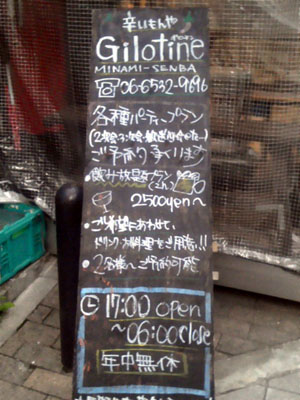 辛いもんや
Gilotine
MINAMI-SENBA
☎06-6532-9696
各種パーティープラン
ご予約承ります
・飲み放題プラン
2500yen〜
・ご希望にあわせて、
ドリンク、お料理をご用意!!
・2名様〜ご予約可能
17:00 open
〜06:00 close
年中無休